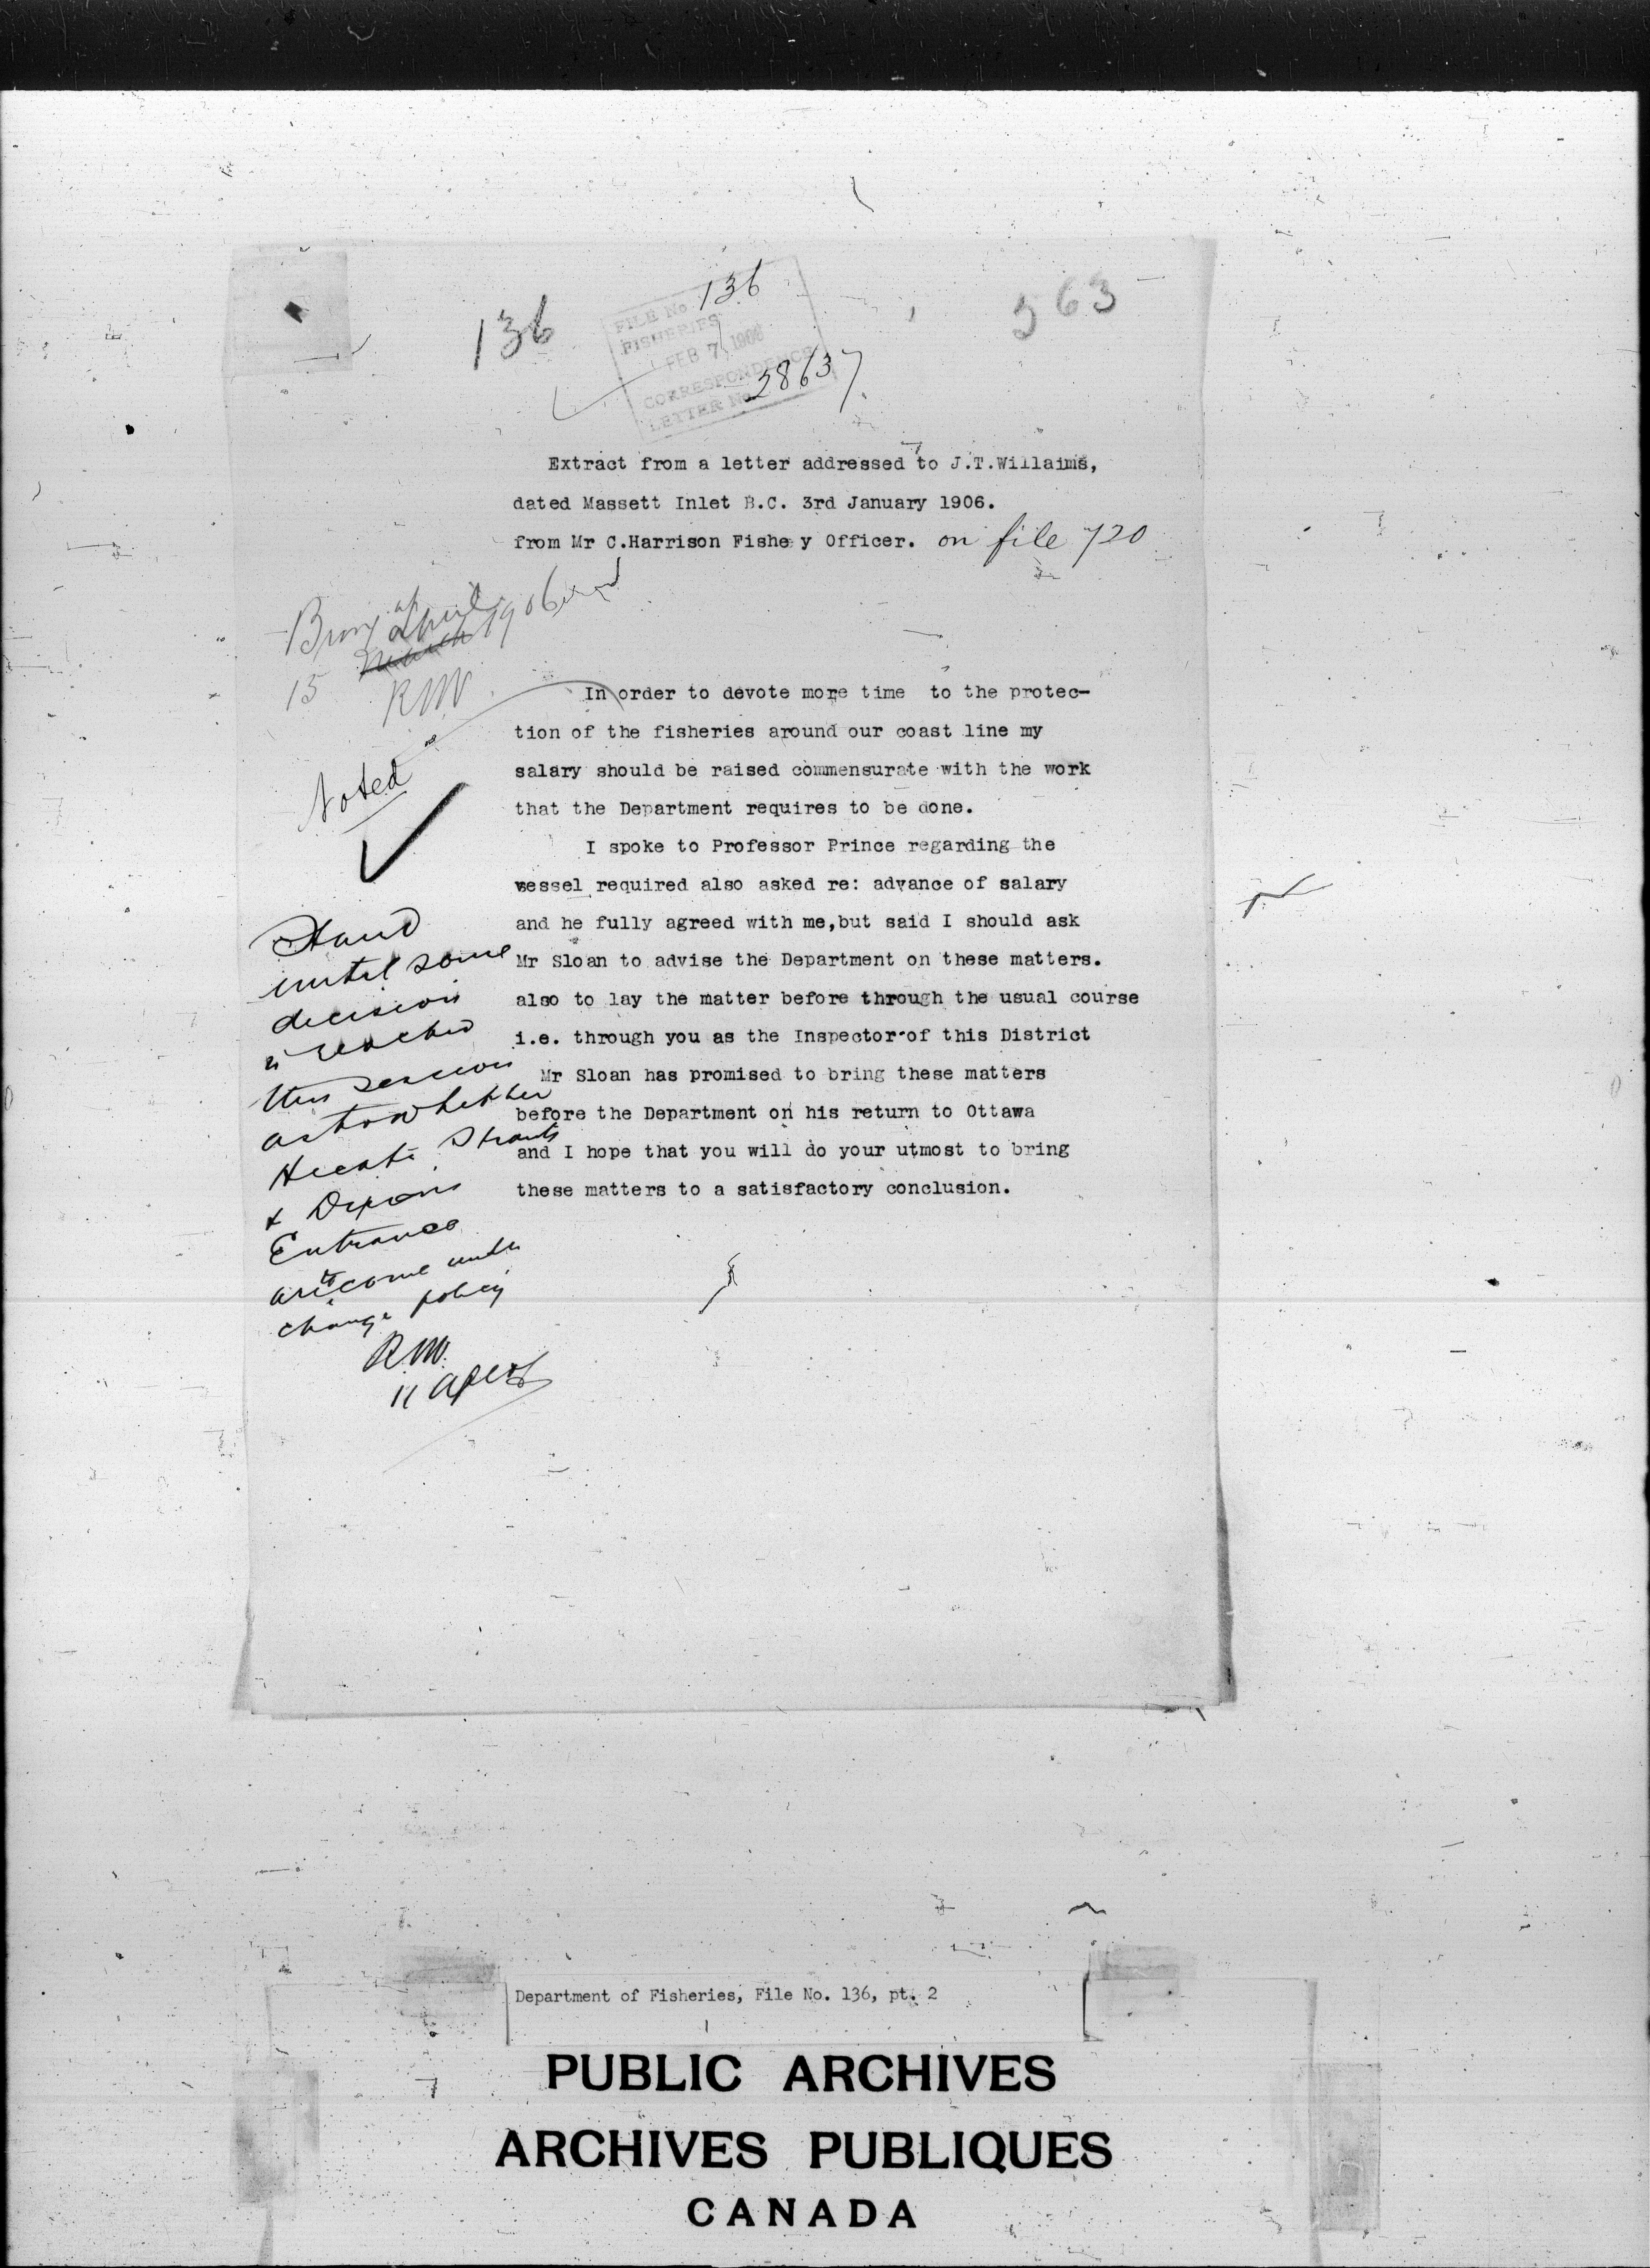 136
363
FILE No. 136
FISHERIES
FEB 7 1906
CORRESPONDENCE
LETTER No. 28637
Extract from a letter addressed to J.T.Willaims,
dated Massett Inlet B.C. 3rd January 1906.
from Mr C.Harrison Fishe y Officer. on file 720
Bring up
15 March April 1906
RW
Noted
In order to devote more time to the protec-
tion of the fisheries around our coast line my
salary should be raised commensurate with the work
that the Department requires to be done.
I spoke to Professor Prince regarding the
vessel required also asked re: advance of salary
and he fully agreed with me,but said I should ask
Mr Sloan to advise the Department on these matters.
also to lay the matter before through the usual course
i.e. through you as the Inspector of this District
Mr Sloan has promised to bring these matters
before the Department on his return to Ottawa
and I hope that you will do your utmost to bring
these matters to a satisfactory conclusion.
Stand
until some
decision
is reached
this session
as to whether
Hecate Straits
& Dixons
Entrance
are to come under
change policy
RW.
11 Apl 06
Department of Fisheries, File No. 136, pt. 2
PUBLIC ARCHIVES
ARCHIVES PUBLIQUES
CANADA